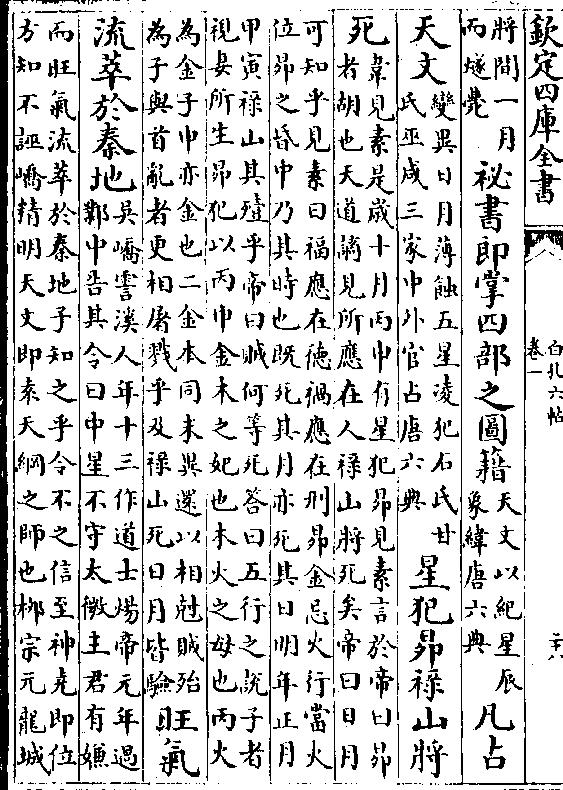 欽定四庫全書
白孔六帖
卷一
二十八
將間一月
而燧斃
祕書即掌四部之圖籍
天文以紀星辰
象緯唐六典
凡占
天文
變異日月薄蝕五星凌犯石氏甘
氏巫咸三家中外官占唐六典
星犯昴祿山將
死
韋見素是歲十月丙申有星犯昴見素言於帝曰昴
者胡也天道謫見所應在人祿山將死矣帝曰日月
可知乎見素曰福應在徳禍應在刑昴金忌火行當火
位昴之昏中乃其時也既死其月亦死其日明年正月
甲寅祿山其殪乎帝曰賊何等死答曰五行之說子者
視妻所生昴犯以丙申金木之妃也木火之母也丙火
為金子申亦金也二金本同末異還以相尅賊殆
為子與首亂者更相屠戮乎及祿山死日月皆驗
旺氣
流萃於秦地
吳嶠霅溪人年十三作道士煬帝元年過
鄴中告其令曰中星不守太微主君有嫌
而旺氣流萃於秦地子知之乎令不之信至神堯即位
方知不誣嶠精明天文即袁天綱之師也栁宗元龍城